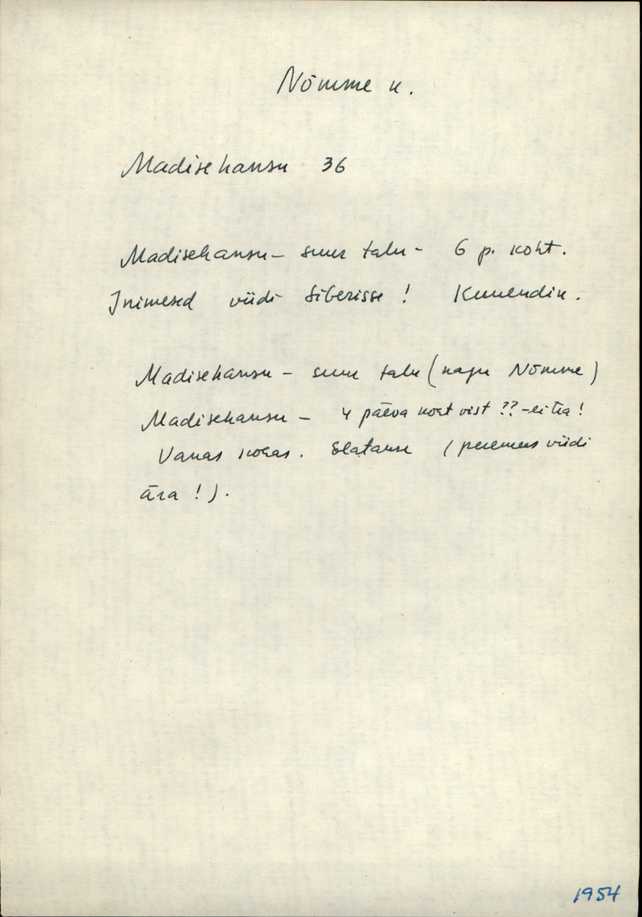 Nõmme k.
Madisehansu 36
Madisehansu – suur talu – 6 p. koht.
Inimesed viidi Siberisse! Kuuendik.
Madisehansu – suur talu (nagu Nõmme)
Madisehansu – 4 päeva koht vist ??–ei tea!
Vanas kohas. (peremees viidi
ära!).
1954